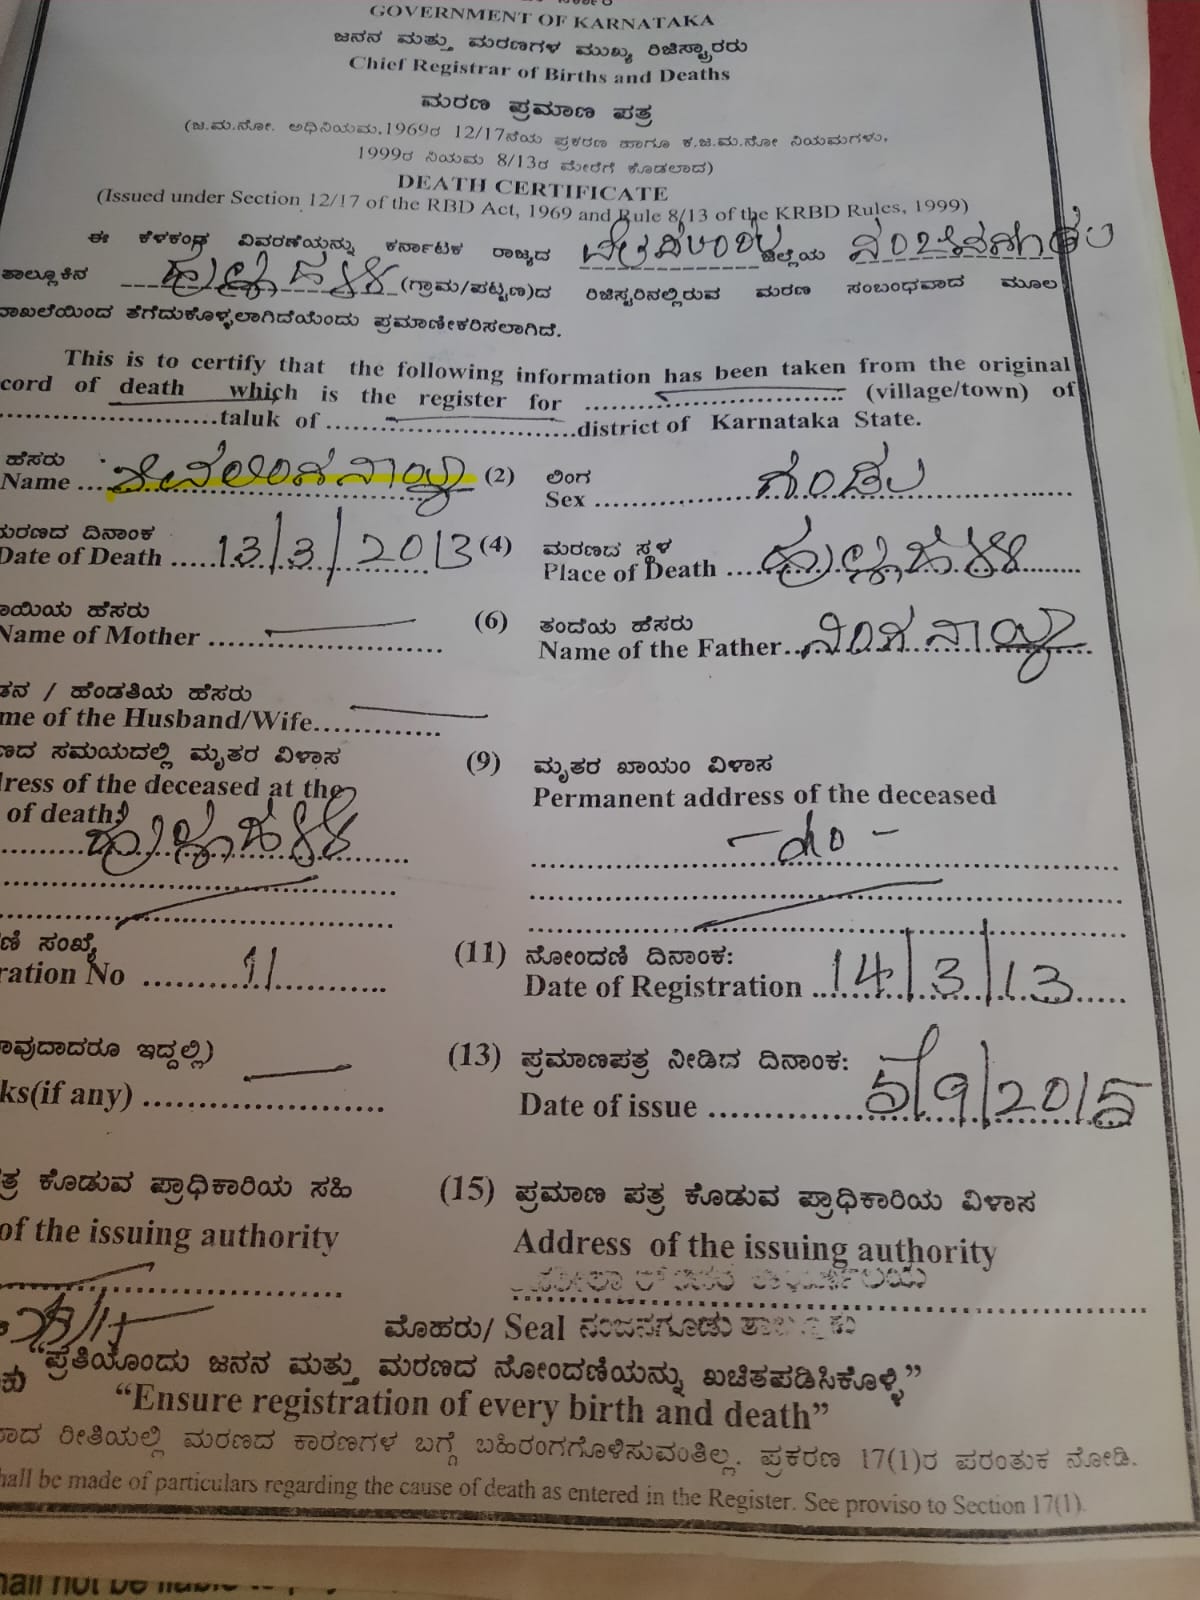 GOVERNMENT OF KARNATAKA
ಜನನ ಮತ್ತು ಮರಣಗಳ ಮುಖ್ಯ ರಿಜಿಸ್ಟ್ರಾರರು
Chief Registrar of Births and Deaths
ಮರಣ ಪ್ರಮಾಣ ಪತ್ರ
(ಜ.ಮ.ನೋ. ಅಧಿನಿಯಮ,1969ರ 12/17ನೆಯ ಪ್ರಕರಣ ಹಾಗೂ ಕ.ಜ.ಮ.ನೋ ನಿಯಮಗಳು,
1999ರ ನಿಯಮ 8/13ರ ಮೇರೆಗೆ ಕೊಡಲಾದ)
DEATH CERTIFICATE
(Issued under Section 12/17 of the RBD Act, 1969 and Rule 8/13 of the KRBD Rules, 1999)
ಈ ಕೆಳಕಂಡ ವಿವರಣೆಯನ್ನು ಕರ್ನಾಟಕ ರಾಜ್ಯದ ಜಿಲ್ಲೆಯ ನಂಜನಗೂಡು
ತಾಲ್ಲೂಕಿನ ಹುಲ್ಲಹಳ್ಳಿ (ಗ್ರಾಮ/ಪಟ್ಟಣ)ದ ರಿಜಿಸ್ಟರಿನಲ್ಲಿರುವ ಮರಣ ಸಂಬಂಧವಾದ ಮೂಲ
ದಾಖಲೆಯಿಂದ ತೆಗೆದುಕೊಳ್ಳಲಾಗಿದೆಯೆಂದು ಪ್ರಮಾಣೀಕರಿಸಲಾಗಿದೆ.
This is to certify that the following information has been taken from the original
cord of death which is the register for .......... (village/town) of
..........taluk of ..........district of Karnataka State.
ಹೆಸರು (2) ಲಿಂಗ
Name ... ನಾಯ್ಕ Sex ... ಗಂಡು
ಮರಣದ ದಿನಾಂಕ (4) ಮರಣದ ಸ್ಥಳ
Date of Death ..... 13/3/2013 Place of Death .... ಹುಲ್ಲಹಳ್ಳಿ
ತಾಯಿಯ ಹೆಸರು (6) ತಂದೆಯ ಹೆಸರು
Name of Mother .......... Name of the Father.. ನಿಂಗ ನಾಯ್ಕ
ಡನ / ಹೆಂಡತಿಯ ಹೆಸರು
me of the Husband/Wife..........
ಣದ ಸಮಯದಲ್ಲಿ ಮೃತರ ವಿಳಾಸ (9) ಮೃತರ ಖಾಯಂ ವಿಳಾಸ
dress of the deceased at the Permanent address of the deceased
of death: ಹುಲ್ಲಹಳ್ಳಿ - do -
ಣಿ ಸಂಖ್ಯೆ (11) ನೋಂದಣಿ ದಿನಾಂಕ:
ration No .......... 11 Date of Registration .. 14/3/13
ಾವುದಾದರೂ ಇದ್ದಲ್ಲಿ) (13) ಪ್ರಮಾಣಪತ್ರ ನೀಡಿದ ದಿನಾಂಕ:
ks(if any) .......... Date of issue .......... 5/9/2015
ತ್ರ ಕೊಡುವ ಪ್ರಾಧಿಕಾರಿಯ ಸಹಿ (15) ಪ್ರಮಾಣ ಪತ್ರ ಕೊಡುವ ಪ್ರಾಧಿಕಾರಿಯ ವಿಳಾಸ
of the issuing authority Address of the issuing authority
ಮೊಹರು/ Seal ನಂಜನಗೂಡು ತಾಲ್ಲೂಕು
“ಪ್ರತಿಯೊಂದು ಜನನ ಮತ್ತು ಮರಣದ ನೋಂದಣಿಯನ್ನು ಖಚಿತಪಡಿಸಿಕೊಳ್ಳಿ”
“Ensure registration of every birth and death”
ರಾದ ರೀತಿಯಲ್ಲಿ ಮರಣದ ಕಾರಣಗಳ ಬಗ್ಗೆ ಬಹಿರಂಗಗೊಳಿಸುವಂತಿಲ್ಲ. ಪ್ರಕರಣ 17(1)ರ ಪರಂತುಕ ನೋಡಿ.
hall be made of particulars regarding the cause of death as entered in the Register. See proviso to Section 17(1).